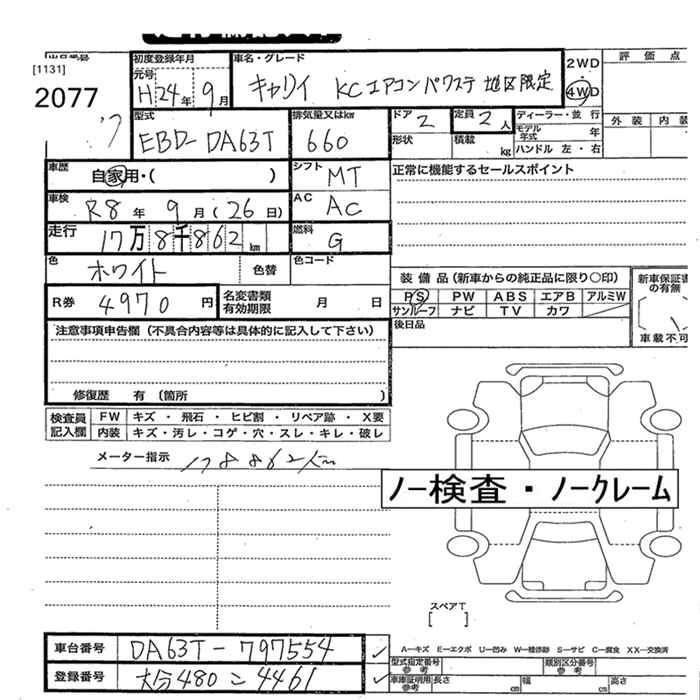 [1131]
2077
初度登録年月
元号
H24年 9月
車名・グレード
キャリイ KCエアコンパワステ 地区限定
2WD
4WD
評価点
外装 内装
型式
EBD-DA63T
排気量又はkw
660
ドア 2
形状
定員 2人
積載 kg
ディーラー・並行
モデル年式 年
ハンドル 左・右
車歴
自家用・( )
シフト
MT
正常に機能するセールスポイント
車検
R8年 9月(26日)
AC
AC
走行
17万8千862km
燃料
G
色
ホワイト
色替
色コード
R券 4970円
名変書類有効期限 月 日
装備品(新車からの純正品に限り○印)
PS PW ABS エアB アルミW
サンルーフ ナビ TV カワ
後日品
新車保証書の有無
車載不可
注意事項申告欄(不具合内容等は具体的に記入して下さい)
修復歴 有(箇所 )
検査員記入欄
FW キズ・飛石・ヒビ割・リペア跡・X要
内装 キズ・汚レ・コゲ・穴・スレ・キレ・破レ
メーター指示 178862km
ノー検査・ノークレーム
スペアT
[ ]
車台番号 DA63T-797554
登録番号 大分480こ4461
A-キズ E-エクボ U-凹み W-補修跡 S-サビ C-腐食 XX-交換済
型式指定番号 参考
類別区分番号 参考
車庫証明用 参考 長さ cm 幅 cm 高さ cm